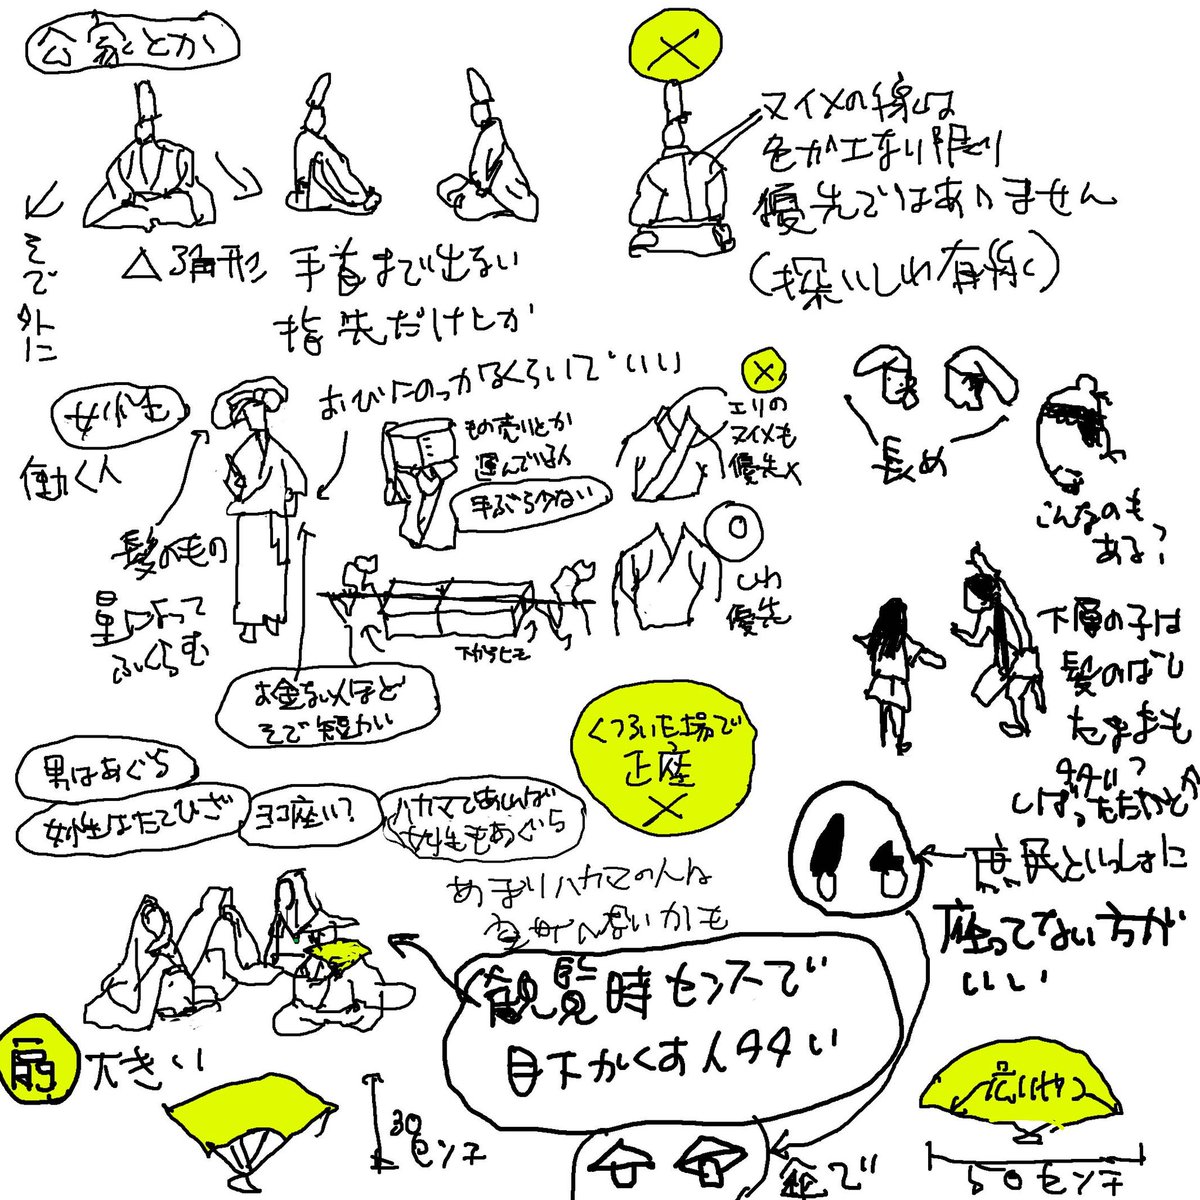 公家とか
そで外に
△三角形
手首まで出ない
指先だけとか
×
ヌイメの線は
色かエない限り
優先ではありません
(深いしわ有除く)
女性も
働く人
髪のもの
量によって
ふくらむ
おびにのっかるくらいでいい
もの売りとか
運んでる人
手ぶら少ない
下からヒモ
お金ない人ほど
そで短かい
×
エリの
ヌイメも
優先×
○
しわ
優先
長め
こんなのも
ある?
下層の子は
髪のばし
たままも
多い?
しばったたかとか
男はあぐら
女性はたてひざ
ヨコ座い?
ハカマであれば
女性もあぐら
くつろいた場で
正座
×
あまりハカマの人は
庶民といっしょに
座ってない方が
いい
観覧時センスで
目下かくす人多い
扇
大きい
30
センチ
傘で
広いやつ
50センチ